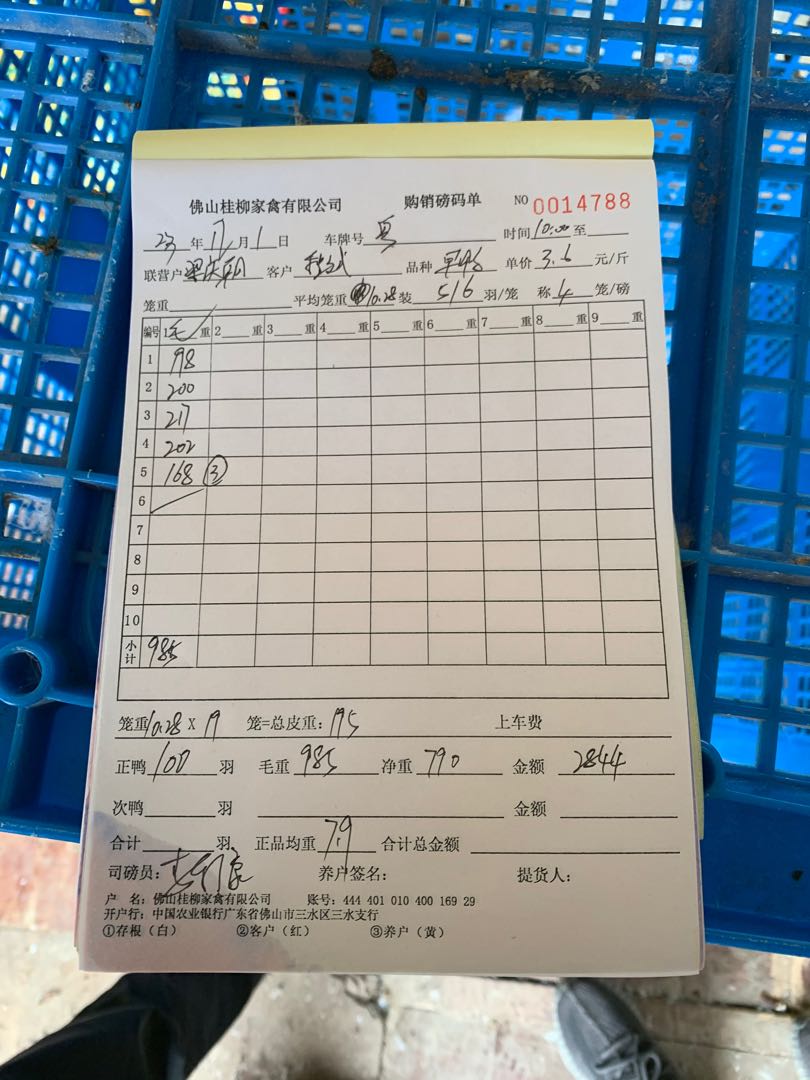 佛山桂柳家禽有限公司 购销磅码单 NO 0014788
23年 月1日 车牌号 时间10:00至
联营户 客户 品种 单价3.6元/斤
笼重 平均笼重10.28装5/6羽/笼 称4笼/磅
编号 1毛重 2重 3重 4重 5重 6重 7重 8重 9重
1 198
2 200
3 217
4 202
5 168 ③
6
7
8
9
10
小计 985
笼重10.28X19笼=总皮重:195 上车费
正鸭100羽 毛重985 净重790 金额2844
次鸭 羽 金额
合计 羽 正品均重7.9 合计总金额
司磅员: 养户签名: 提货人:
户 名:佛山桂柳家禽有限公司 账号:444 401 010 400 169 29
开户行:中国农业银行广东省佛山市三水区三水支行
①存根(白) ②客户(红) ③养户(黄)